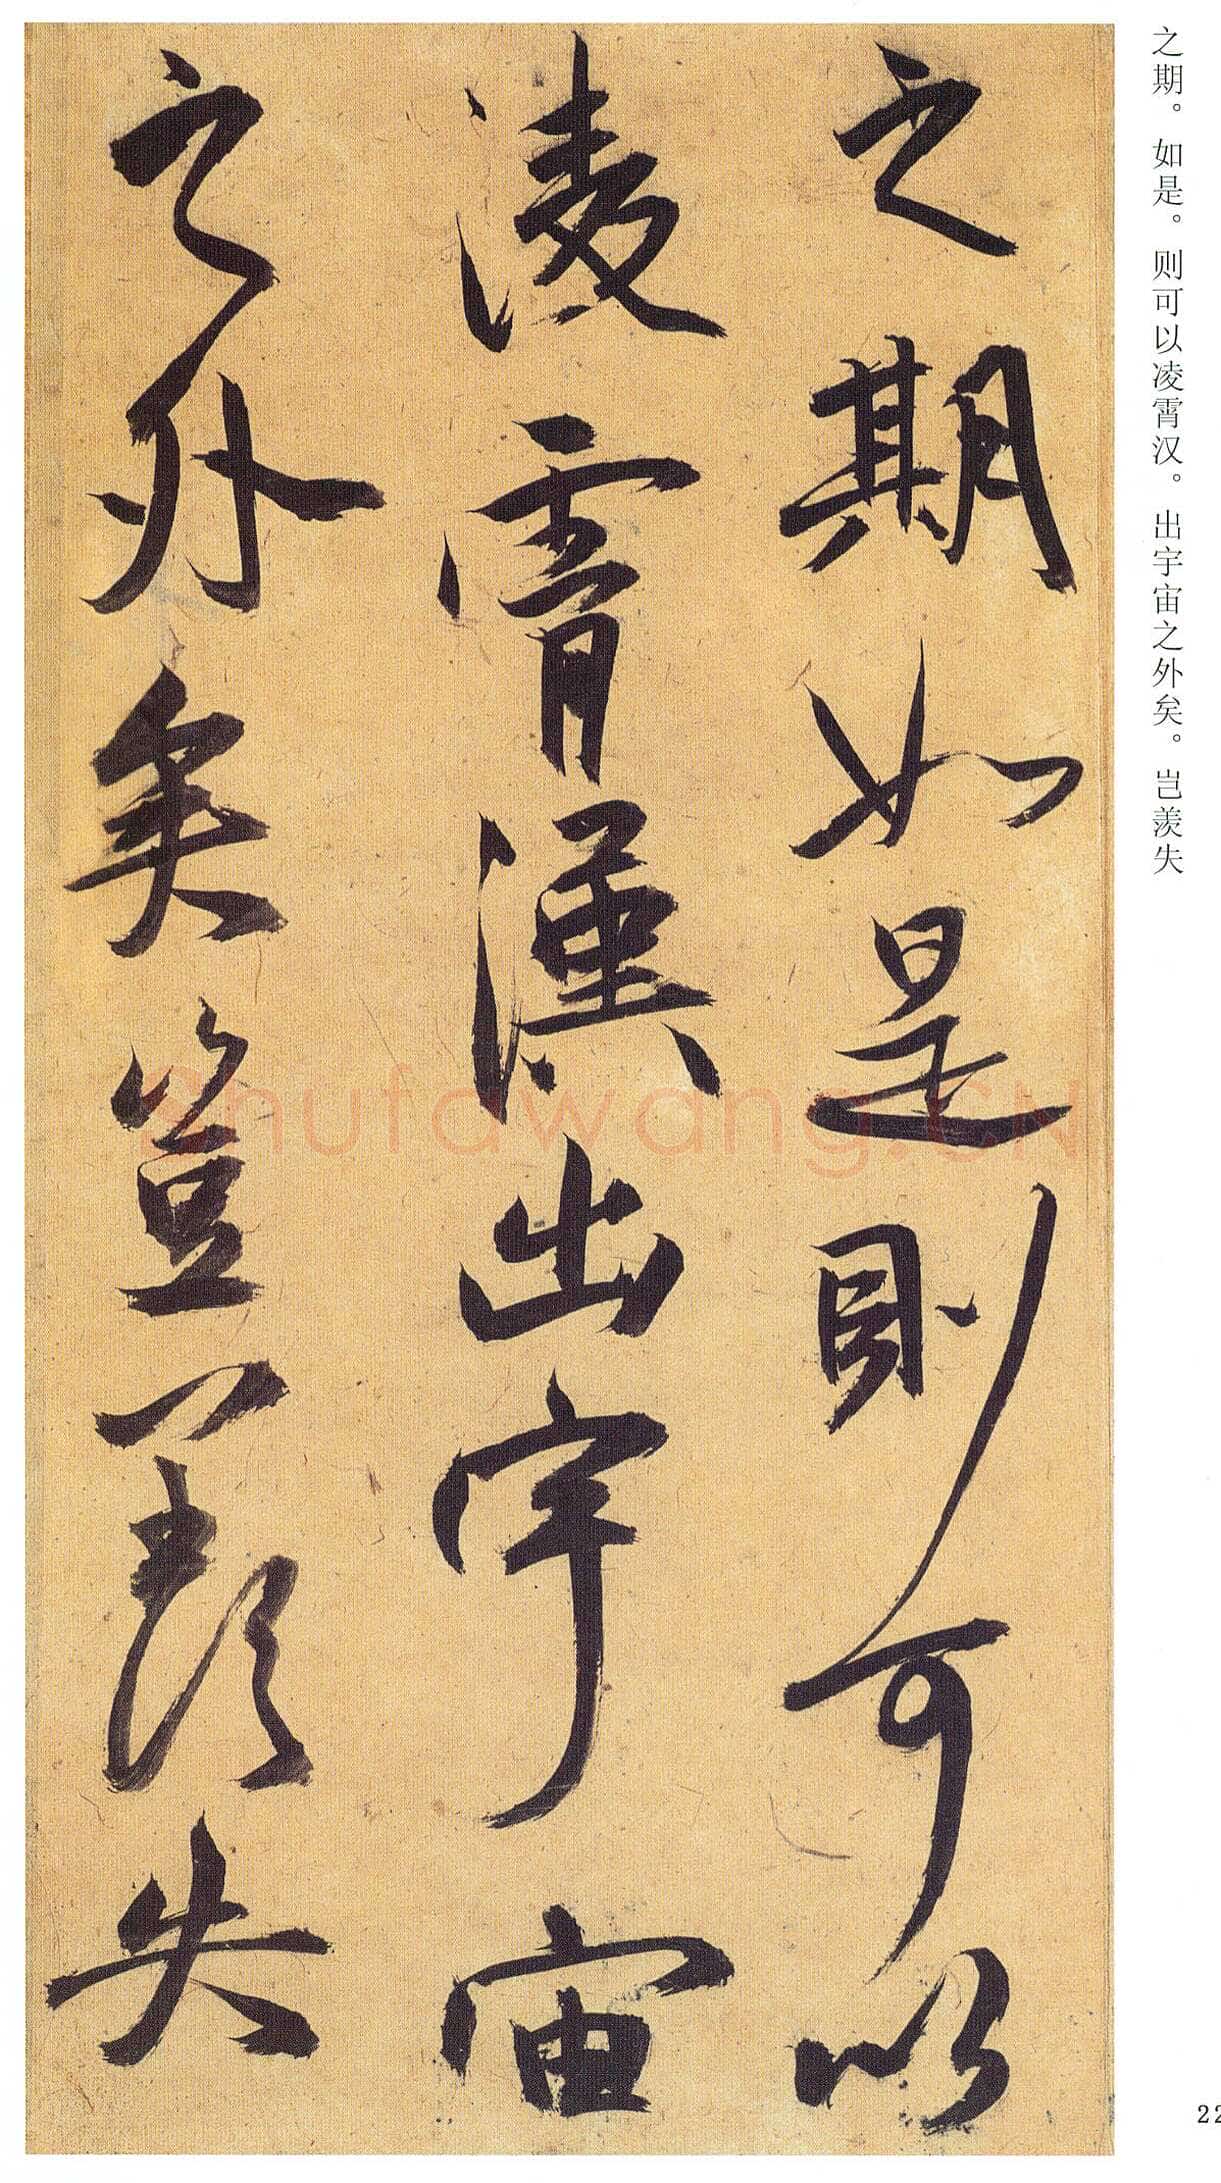 之期。如是。则可以凌霄汉。出宇宙之外矣。岂羡失
之期如是則可以
淩霄漢出宇宙
之外矣豈羨失
shufawang.CN
22